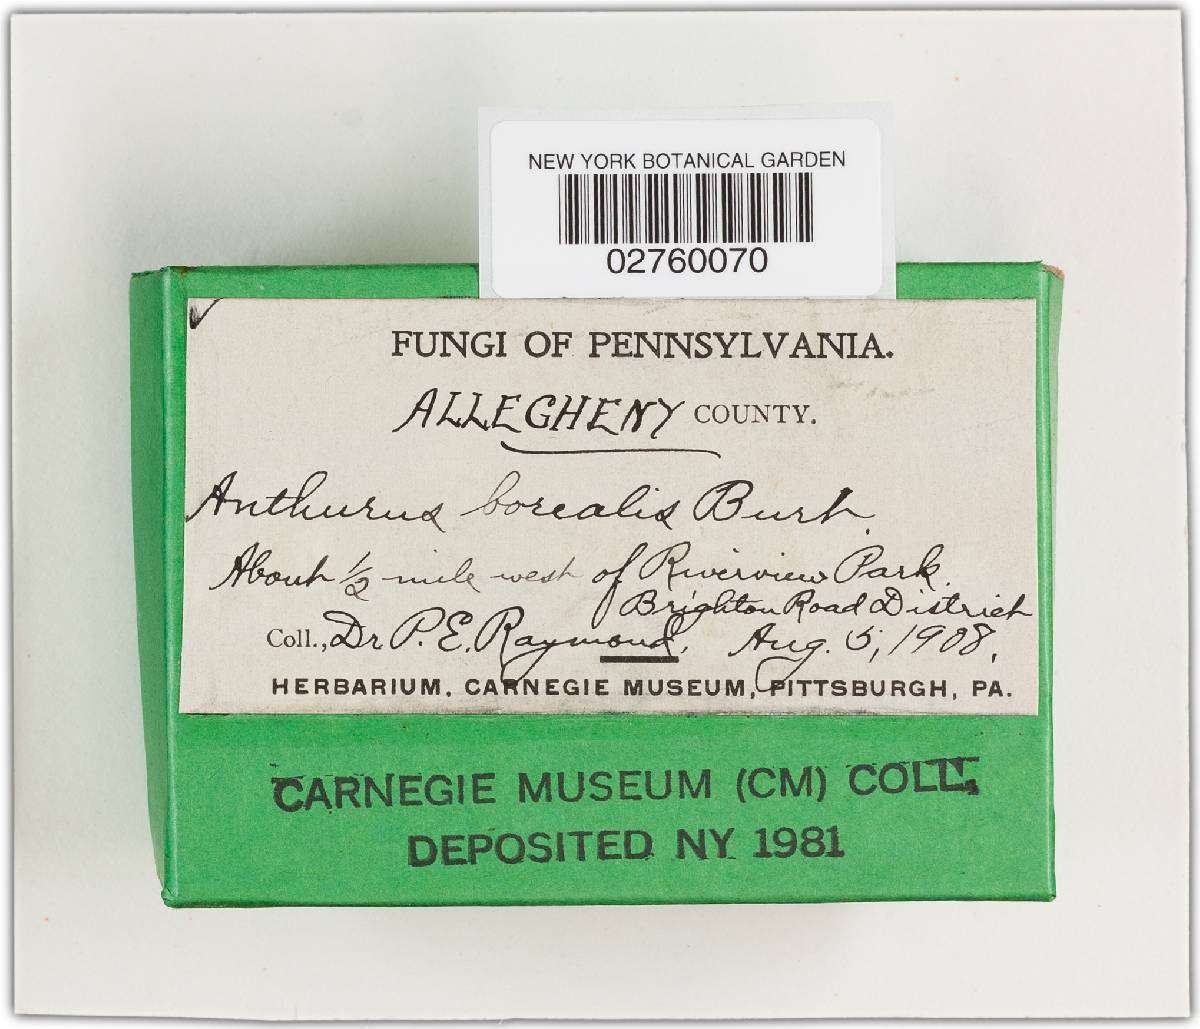 NEW YORK BOTANICAL GARDEN
02760070
FUNGI OF PENNSYLVANIA.
ALLEGHENY COUNTY.
Anthurus borealis Burt.
About 1/2 mile west of Riverview Park.
Brighton Road District
Coll., Dr P. E. Raymond. Aug. 5, 1908.
HERBARIUM, CARNEGIE MUSEUM, PITTSBURGH, PA.
CARNEGIE MUSEUM (CM) COLL.
DEPOSITED NY 1981